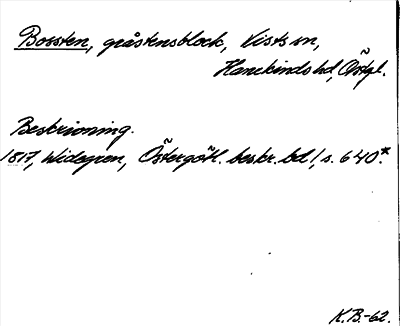 Bossten, gråstensblock, Vists sn,
Hanekinds hd, Östgl.
Beskrivning.
1817, Widegren, Östergötl. beskr. bd 1, s. 640.*
K.B.-62.